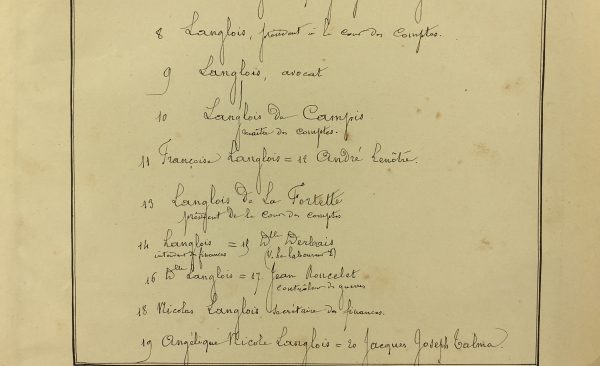 8 Langlois, président à la cour des Comptes.
9 Langlois, avocat
10 Langlois de Campis
maître des comptes.
11 Françoise Langlois = 12 André Lenôtre.
13 Langlois de La Fortelle
président de la cour des comptes
14 Langlois = 15 Dlle Derbais
intendt des finances (V. Le laboureur 2)
16 Dlle Langlois = 17. Jean
contrôleur des guerres
18 Nicolas Langlois secrétaire des finances.
19 Angélique Nicole Langlois = 20 Jacques Joseph Talma.